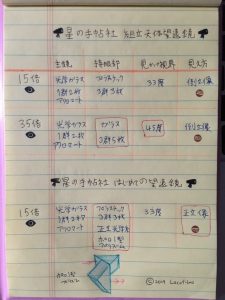 星の手帖社 組立天体望遠鏡
主鏡 接眼部 見かけ視界 見え方
15倍 光学ガラス プラスチック 33度 倒立像
1群2枚 3群3枚
アクロマート
35倍 光学ガラス ガラス 45度 倒立像
1群2枚 3群5枚
アクロマート
星の手帖社 はじめての望遠鏡
15倍 光学ガラス プラスチック 33度 正立像
1群2枚 3群3枚
アクロマート 正立光学系
ポロ1型
プリズム
ポロ1型
プリズム